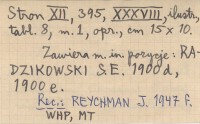 Stron XII, 395, XXXVIII, ilustr,
tabl. 8, m. 1, opr., cm 15 x 10.
Zawiera m. in. pozycje: RA-
DZIKOWSKI S.E. 1900 d,
1900 e.
Rec.: REYCHMAN J. 1947 f.
WHP, MT